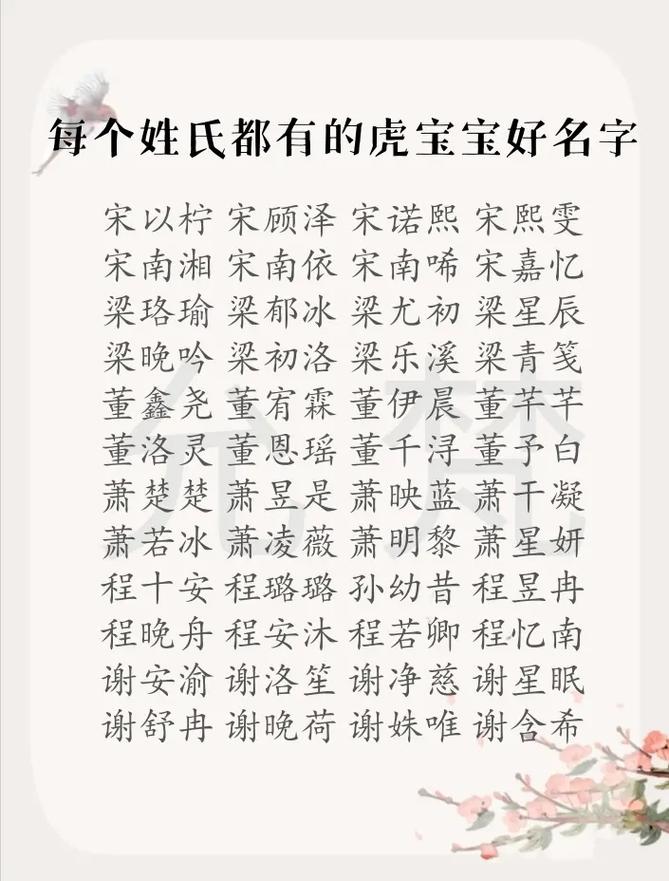 每个姓氏都有的虎宝宝好名字
宋以柠 宋顾泽 宋诺熙 宋熙雯
宋南湘 宋南依 宋南唏 宋嘉忆
梁珞瑜 梁郁冰 梁尤初 梁星辰
梁晚吟 梁初洛 梁乐溪 梁青笺
董鑫尧 董宥霖 董伊晨 董芊芊
董洛灵 董恩瑶 董千浔 董予白
萧楚楚 萧昱是 萧映蓝 萧干凝
萧若冰 萧凌薇 萧明黎 萧星妍
程十安 程璐璐 孙幼昔 程昱冉
程晚舟 程安沐 程若卿 程忆南
谢安渝 谢洛笙 谢净慈 谢星眠
谢舒冉 谢晚荷 谢姝唯 谢含希
允梵